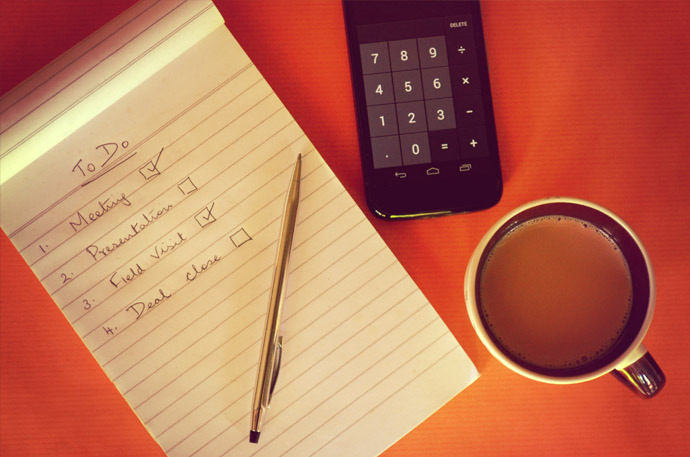 To Do
1. Meeting
2. Presentation
3. Field Visit
4. Deal close
DELETE
7 8 9 ÷
4 5 6 ×
1 2 3 −
. 0 = +